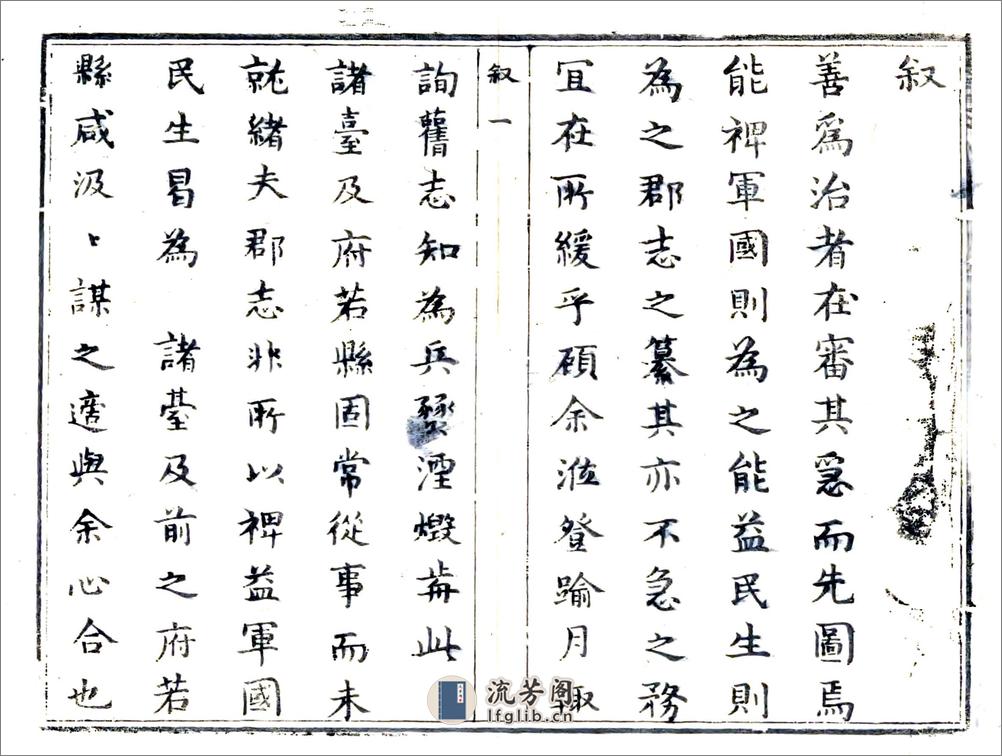 叙
善為治者在審其急而先圖焉
能裨軍國則為之能益民生則
為之郡志之纂其亦不急之務
宜在所緩乎碩余涖登踰月輙
叙 一
詢舊志知為兵燹湮燬耑此
諸臺及府若縣固常從事而未
就緒夫郡志非所以裨益軍國
民生曷為 諸臺及前之府若
縣咸汲〻謀之適與余心合也
流芳阁
lfglib.cn